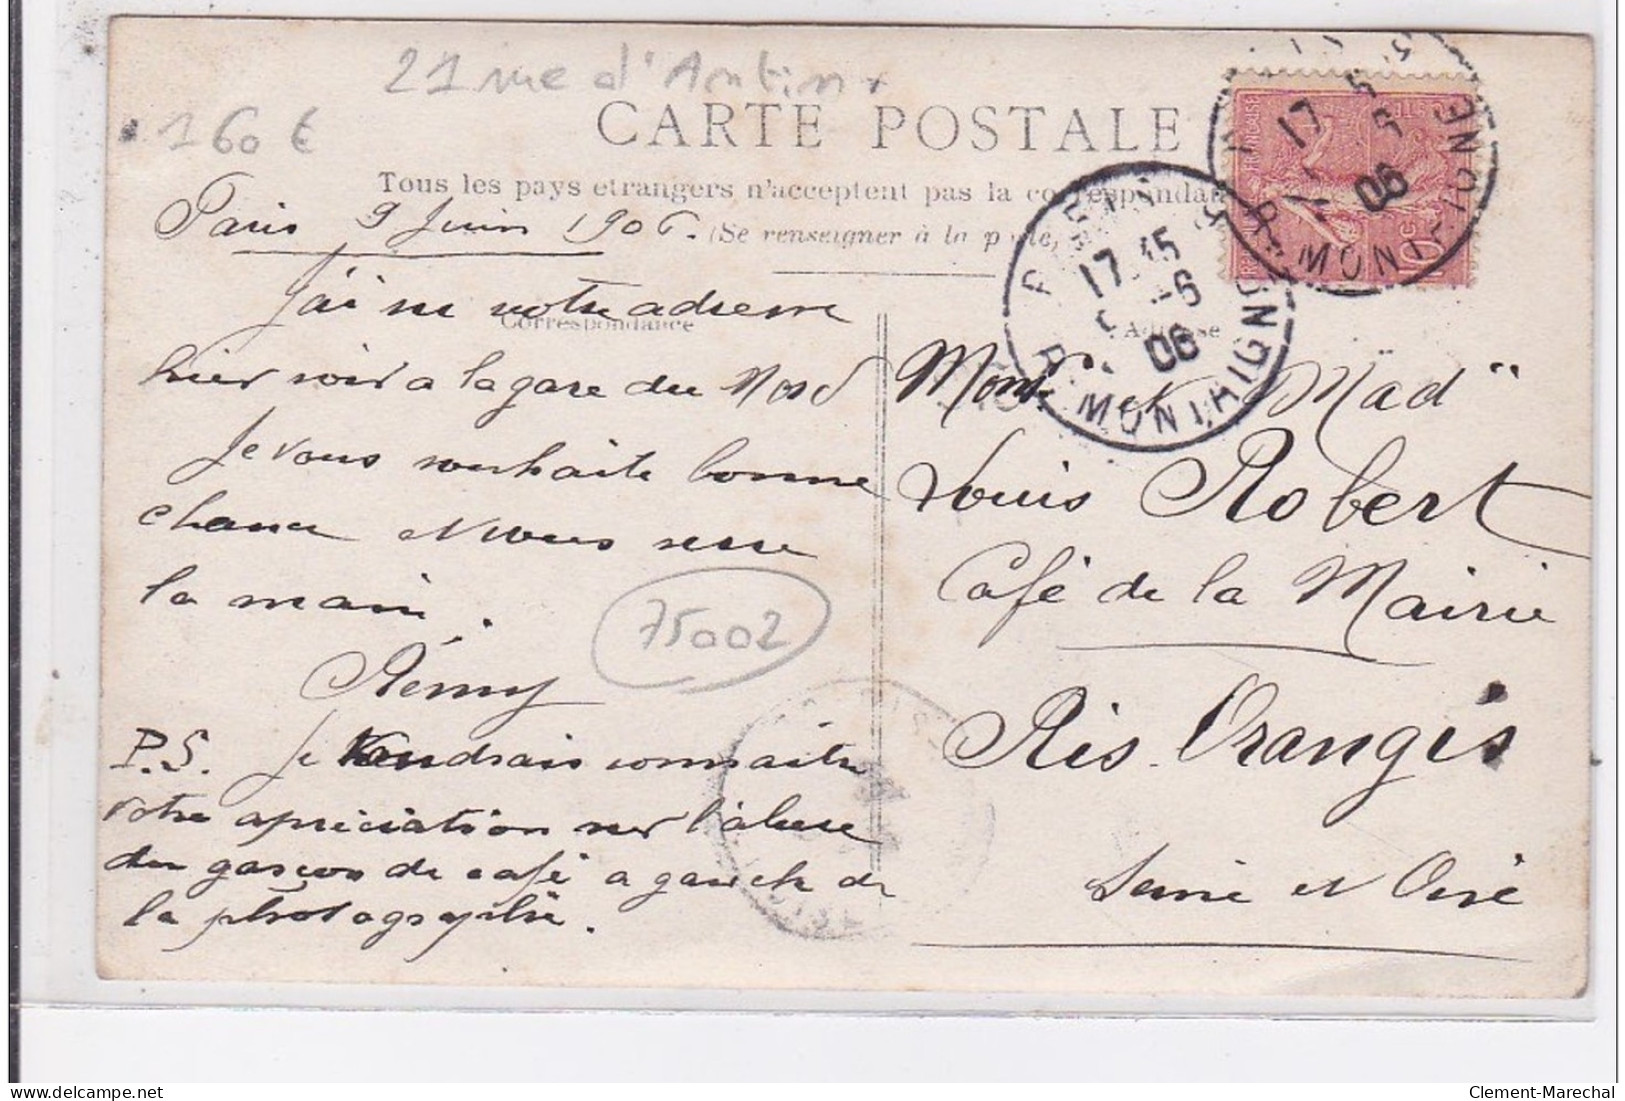 21 rue d'Antin
160 €
CARTE POSTALE
Tous les pays étrangers n'acceptent pas la correspondan
(Se renseigner à la p
Paris 9 Juin 1906.
Correspondance
Adresse
J'ai su votre adresse
hier soir a la gare du Nord
Je vous souhaite bonne
chance et vous serre
la main.
Rémy
75002
P.S. Je voudrais connaitre
votre apréciation sur l'
du garçon de café a gauche de
la photographie.
Monsr et Mad
Louis Robert
Café de la Mairie
Ris Orangis
Seine et Oise
PARIS
17 45
-6
06
R. MONTHIGNY
17
06
R. MONT
10c
Clement-Marechal